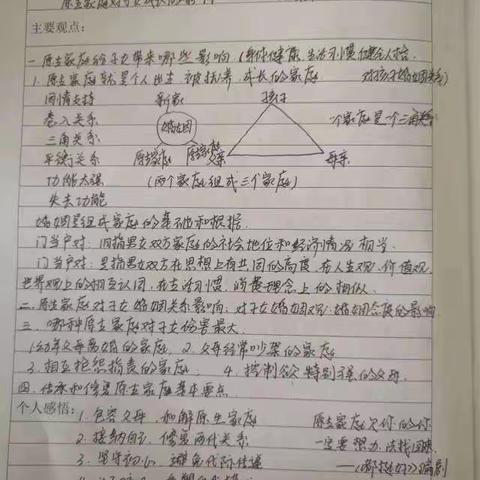 原生家庭对子女成长的影响
主要观点:
一.原生家庭给子女带来哪些影响(身体健康、生活习惯、健全人格、
对孩子婚姻关系)
1.原生家庭就是个人出生被抚养成长的家庭
同情支持
新家
孩子
卷入关系
婚姻
一个家庭是一个三角关系
三角关系
平衡关系
原生家庭
原生家庭
父亲
母亲
功能太强
(两个家庭组成三个家庭)
失去功能
婚姻是组成家庭的基础和根据.
门当户对:旧指男女双方家庭的社会地位和经济情况相当.
门当户对:是指男女双方在思想上有共同的高度,在人生观、价值观、
世界观上的相互认同,在生活习惯、消费理念上的相似.
二.原生家庭对子女婚姻关系影响,对子女婚姻观、婚姻态度的影响
三、哪种原生家庭对子女伤害最大.
1.幼年父母离婚的家庭. 2.父母经常吵架的家庭
3.相互抱怨指责的家庭. 4.控制欲特别强的父母.
四.传承和修复原生家庭基本要点
个人感悟:1.包容父母,和解原生家庭
原生家庭欠你的你
2.接纳自己,修复两代关系
一定要想办法找回来
3.坚守初心,避免代际传递
——《都挺好》编剧